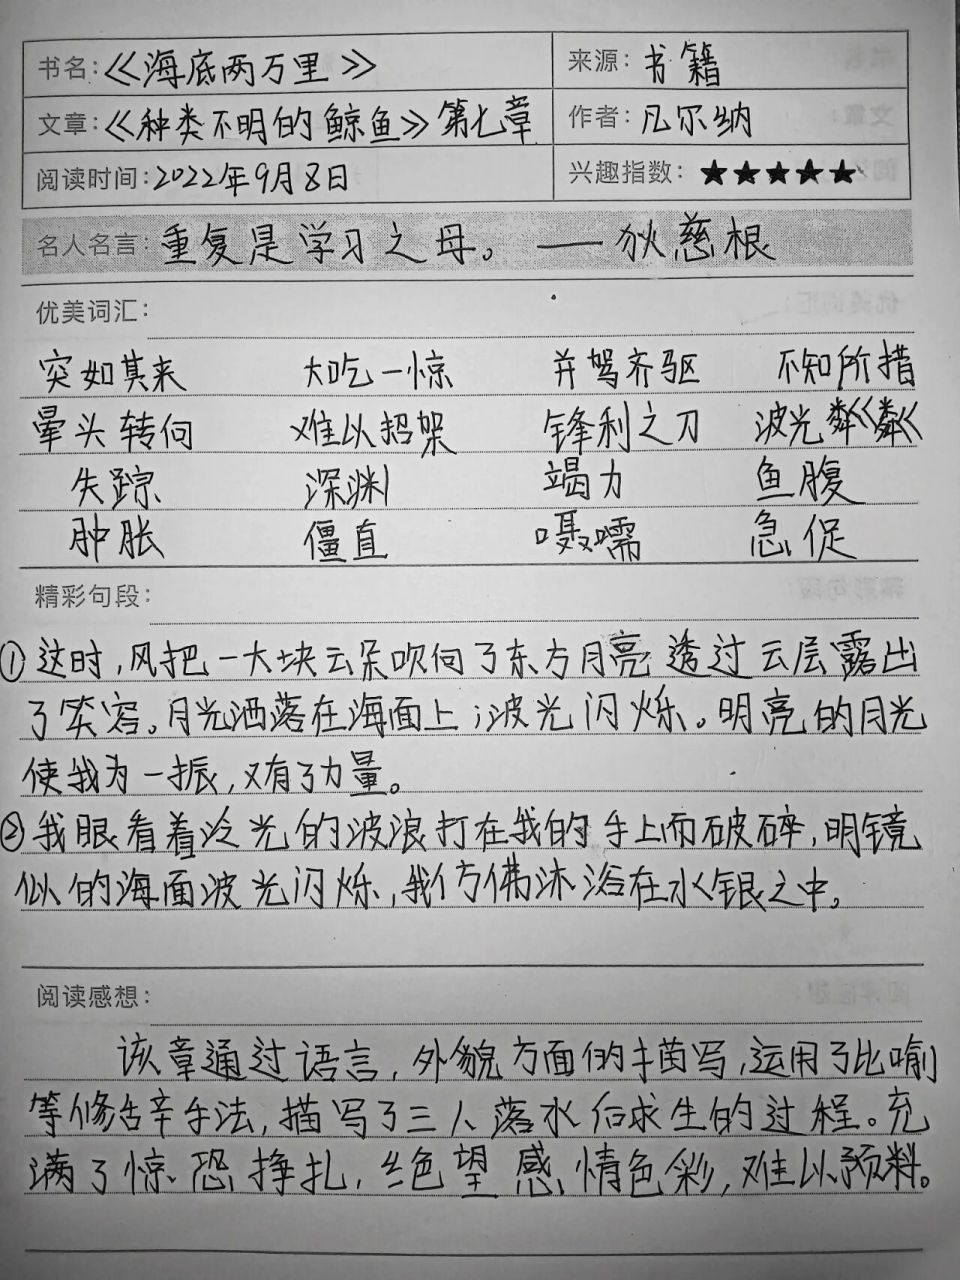 书名:《海底两万里》 来源:书籍
文章:《种类不明的鲸鱼》第七章 作者:凡尔纳
阅读时间:2022年9月8日 兴趣指数:★★★★★
名人名言:重复是学习之母。——狄慈根
优美词汇:
突如其来 大吃一惊 并驾齐驱 不知所措
晕头转向 难以招架 锋利之刀 波光粼粼
失踪 深渊 竭力 鱼腹
肿胀 僵直 嗫嚅 急促
精彩句段:
①这时,风把一大块云朵吹向了东方月亮透过云层露出
了笑容。月光洒落在海面上;波光闪烁。明亮的月光
使我为一振,又有了力量。
②我眼看着冷光的波浪打在我的手上而破碎,明镜
似的海面波光闪烁,我仿佛沐浴在水银之中。
阅读感想:
该章通过语言,外貌方面的描写,运用了比喻
等修辞手法,描写了三人落水后求生的过程。充
满了惊恐挣扎,绝望感情色彩,难以预料。